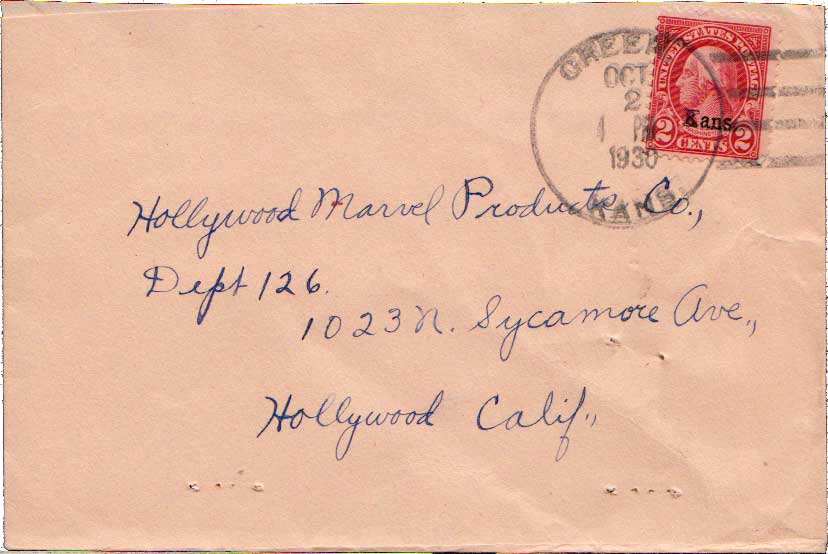 OCT
2
PM
1930
KANS.
UNITED STATES POSTAGE
Kans.
2 CENTS 2
Hollywood Marvel Products Co.,
Dept 126.
1023 N. Sycamore Ave.,
Hollywood Calif.,